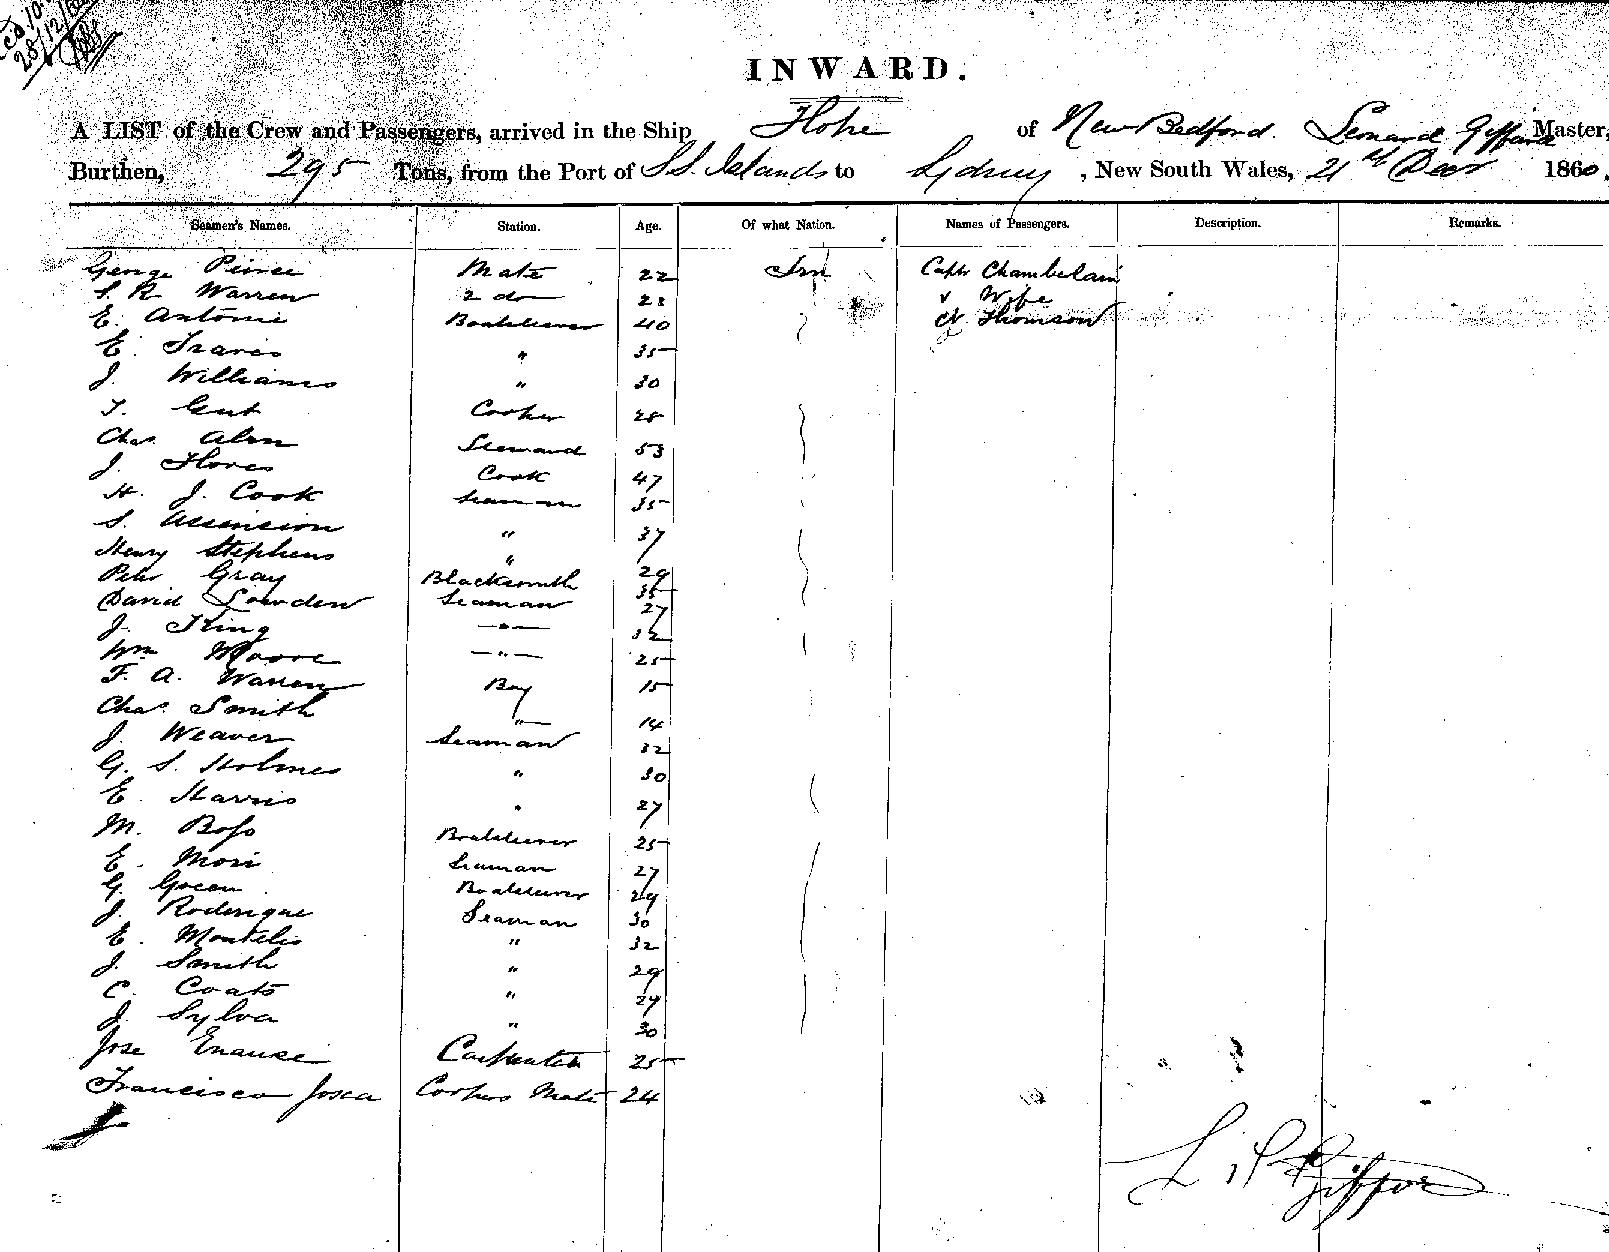 28/12/60
INWARD.
A LIST of the Crew and Passengers, arrived in the Ship Hope of New Bedford. Leonard Gifford Master,
Burthen, 295 Tons, from the Port of S.S. Islands to Sydney, New South Wales, 21st Decr 1860.
Seamen's Names. Station. Age. Of what Nation. Names of Passengers. Description. Remarks.
George Peirce Mate 22 Captn Chamberlain
S. R. Warren 2 do " Wife
E. Antonie Boatsteerer 40 Thomson
E. Travis " 35
J. Williams " 30
T. Cooper
Chas. Steward 53
J. Flores Cook 47
H. J. Cook Seaman 35
S. Ascension " 37
Henry Stephens " 29
Peter Gray Blacksmith 35
David Lowden Seaman 27
J. King " 32
Wm Moore " 25
F. A. Warren Boy 15
Chas. Smith " 14
J. Weaver Seaman 32
G. S. Holmes " 30
E. Harris " 27
M. Boatsteerer 25
E. Mori Seaman 27
G. Green Boatsteerer 29
J. Roderique Seaman 30
E. " 32
J. Smith " 29
C. Coats " 29
J. Sylva " 30
Jose Carpenter 25
Francisco Josea Coopers Mate 24
L. Gifford